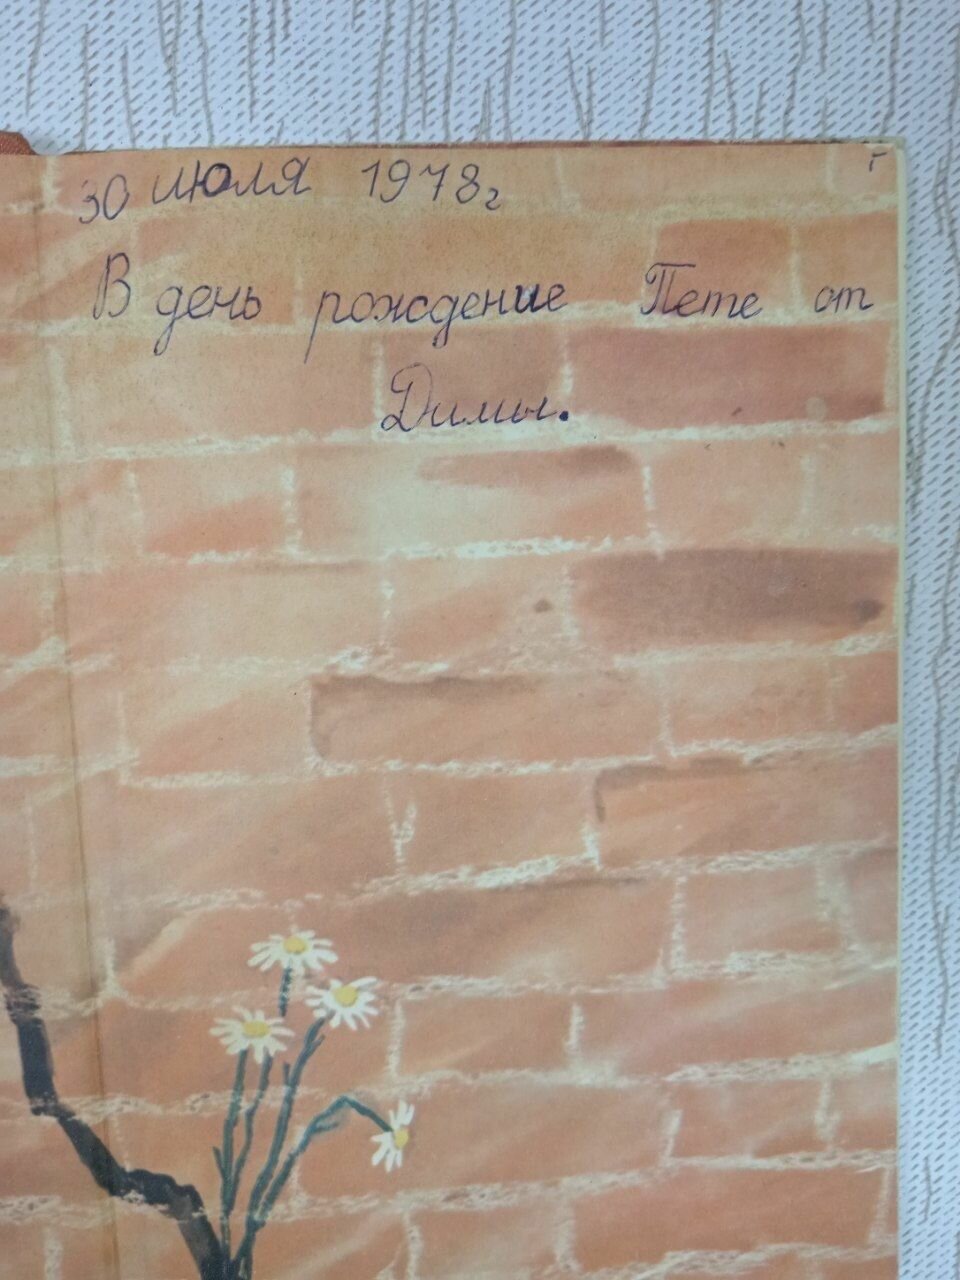 30 июля 1978г
В день рождение Пете от
Димы.